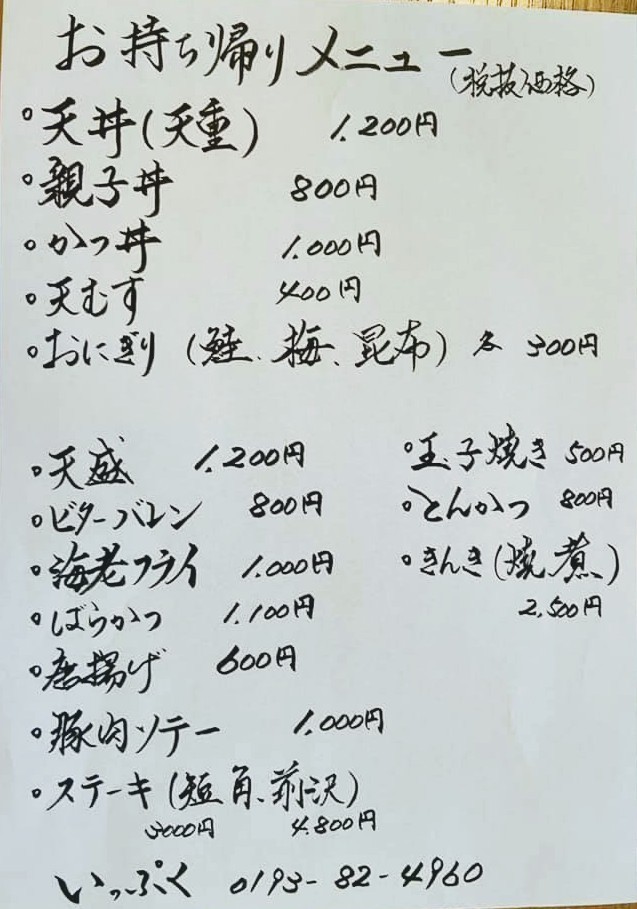 お持ち帰りメニュー
(税抜価格)
◦天丼(天重) 1.200円
◦親子丼 800円
◦かつ丼 1.000円
◦天むす 400円
◦おにぎり(鮭、梅、昆布) 各 300円
◦天盛 1.200円
◦ビターバレン 800円
◦海老フライ 1.000円
◦ばらかつ 1.100円
◦唐揚げ 600円
◦豚肉ソテー 1.000円
◦ステーキ(短角、前沢)
3000円 4.800円
◦玉子焼き 500円
◦とんかつ 800円
◦きんき(焼、煮)
2,500円
いっぷく 0193-82-4960